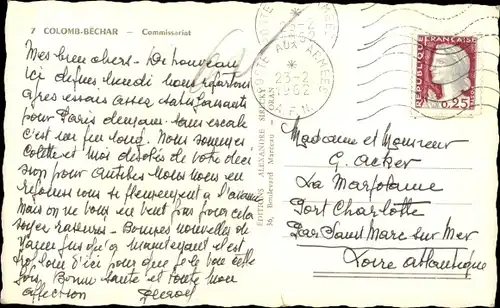 7 COLOMB-BÉCHAR - Commissariat
Mes bien chers - De nouveau
ici depuis lundi nous repartons
après essais assez satisfaisants
pour Paris demain - sans escale
c'est un peu long. Nous sommes,
Colette et moi désolés de votre déci
sion pour Antibes. Nous nous en
Mais on ne vous en veut pas pour cela
soyez rassurés - Bonnes nouvelles de
jusqu'à maintenant il est
d'ici pour que je le voie cette
fois. Bonne santé et toute mon
affection
ÉDITIONS ALEXANDRE SIROKY
36, Boulevard Marceau - ORAN
POSTE AUX ARMEES
23-2
1962
A.F.N.
REPUBLIQUE FRANÇAISE
0,25
Madame et Monsieur
G. Acker
La Marjolaine
Port Charlotte
Par Saint Marc sur Mer
Loire Atlantique